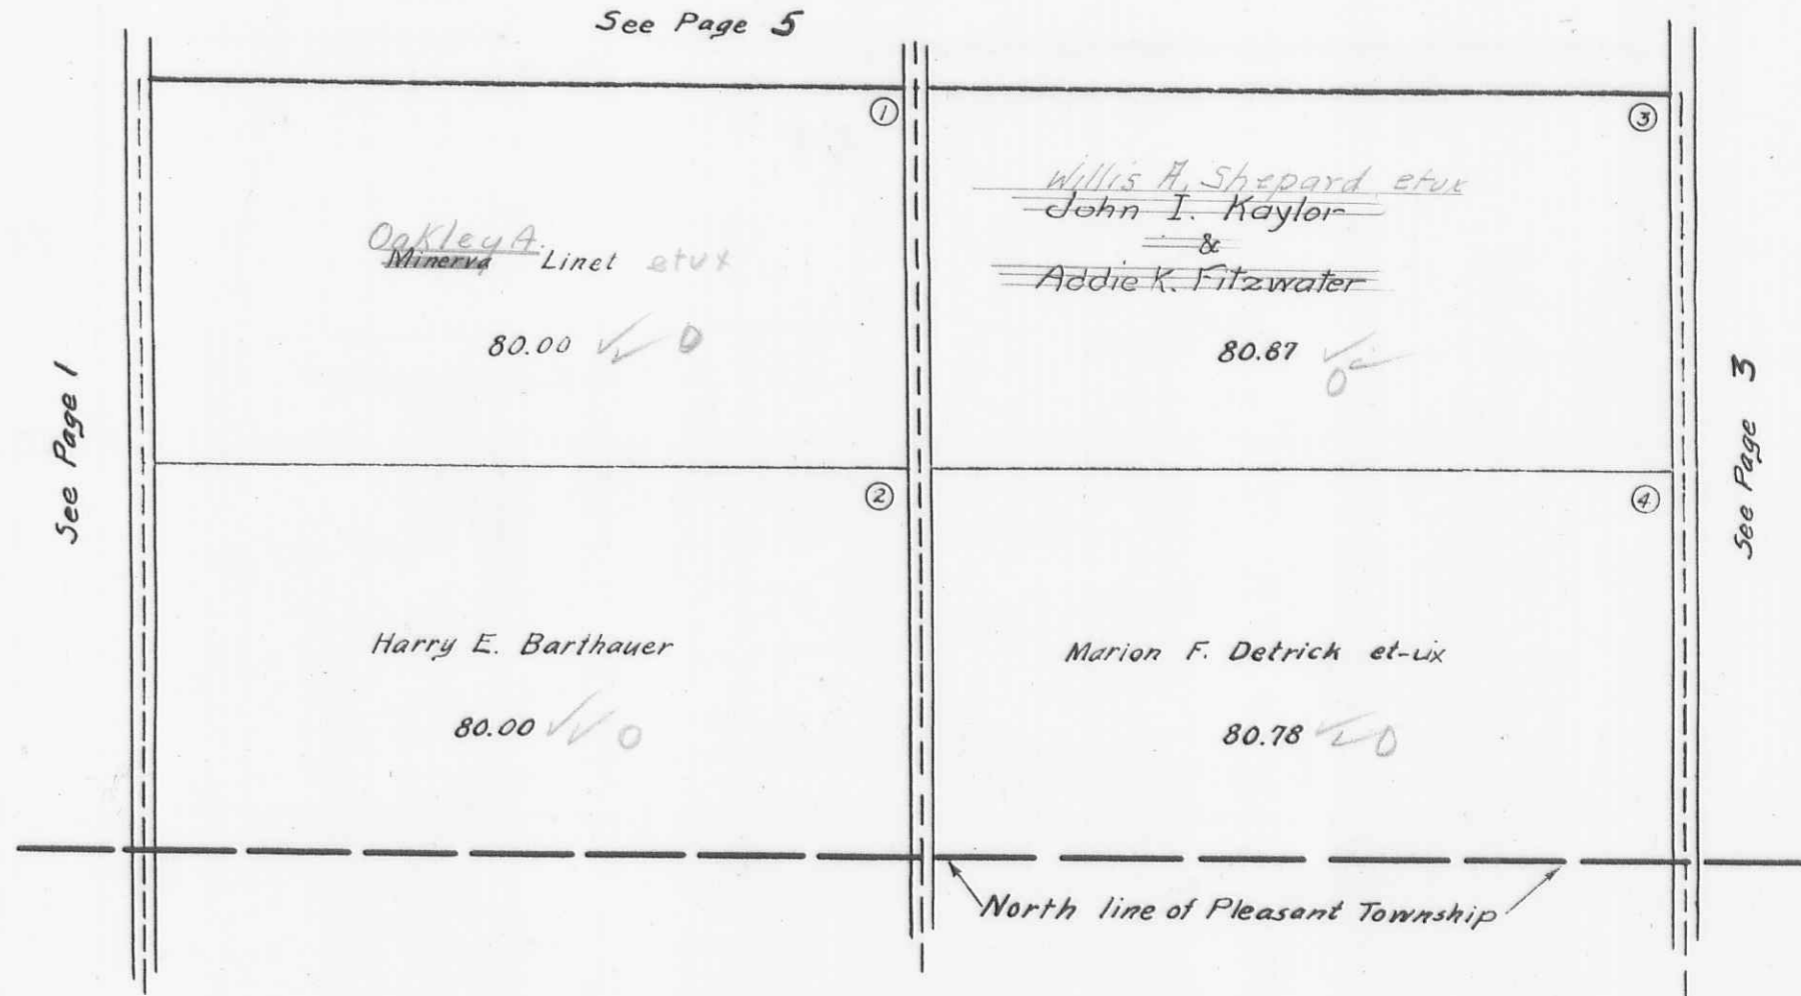 See Page 5
See Page 1
①
Oakley A.
Minerva Linet etux
80.00 0
③
Willis A. Shepard etux
John I. Kaylor
&
Addie K. Fitzwater
80.87
0
See Page 3
②
Harry E. Barthauer
80.00 0
④
Marion F. Detrick et-ux
80.78 0
North line of Pleasant Township